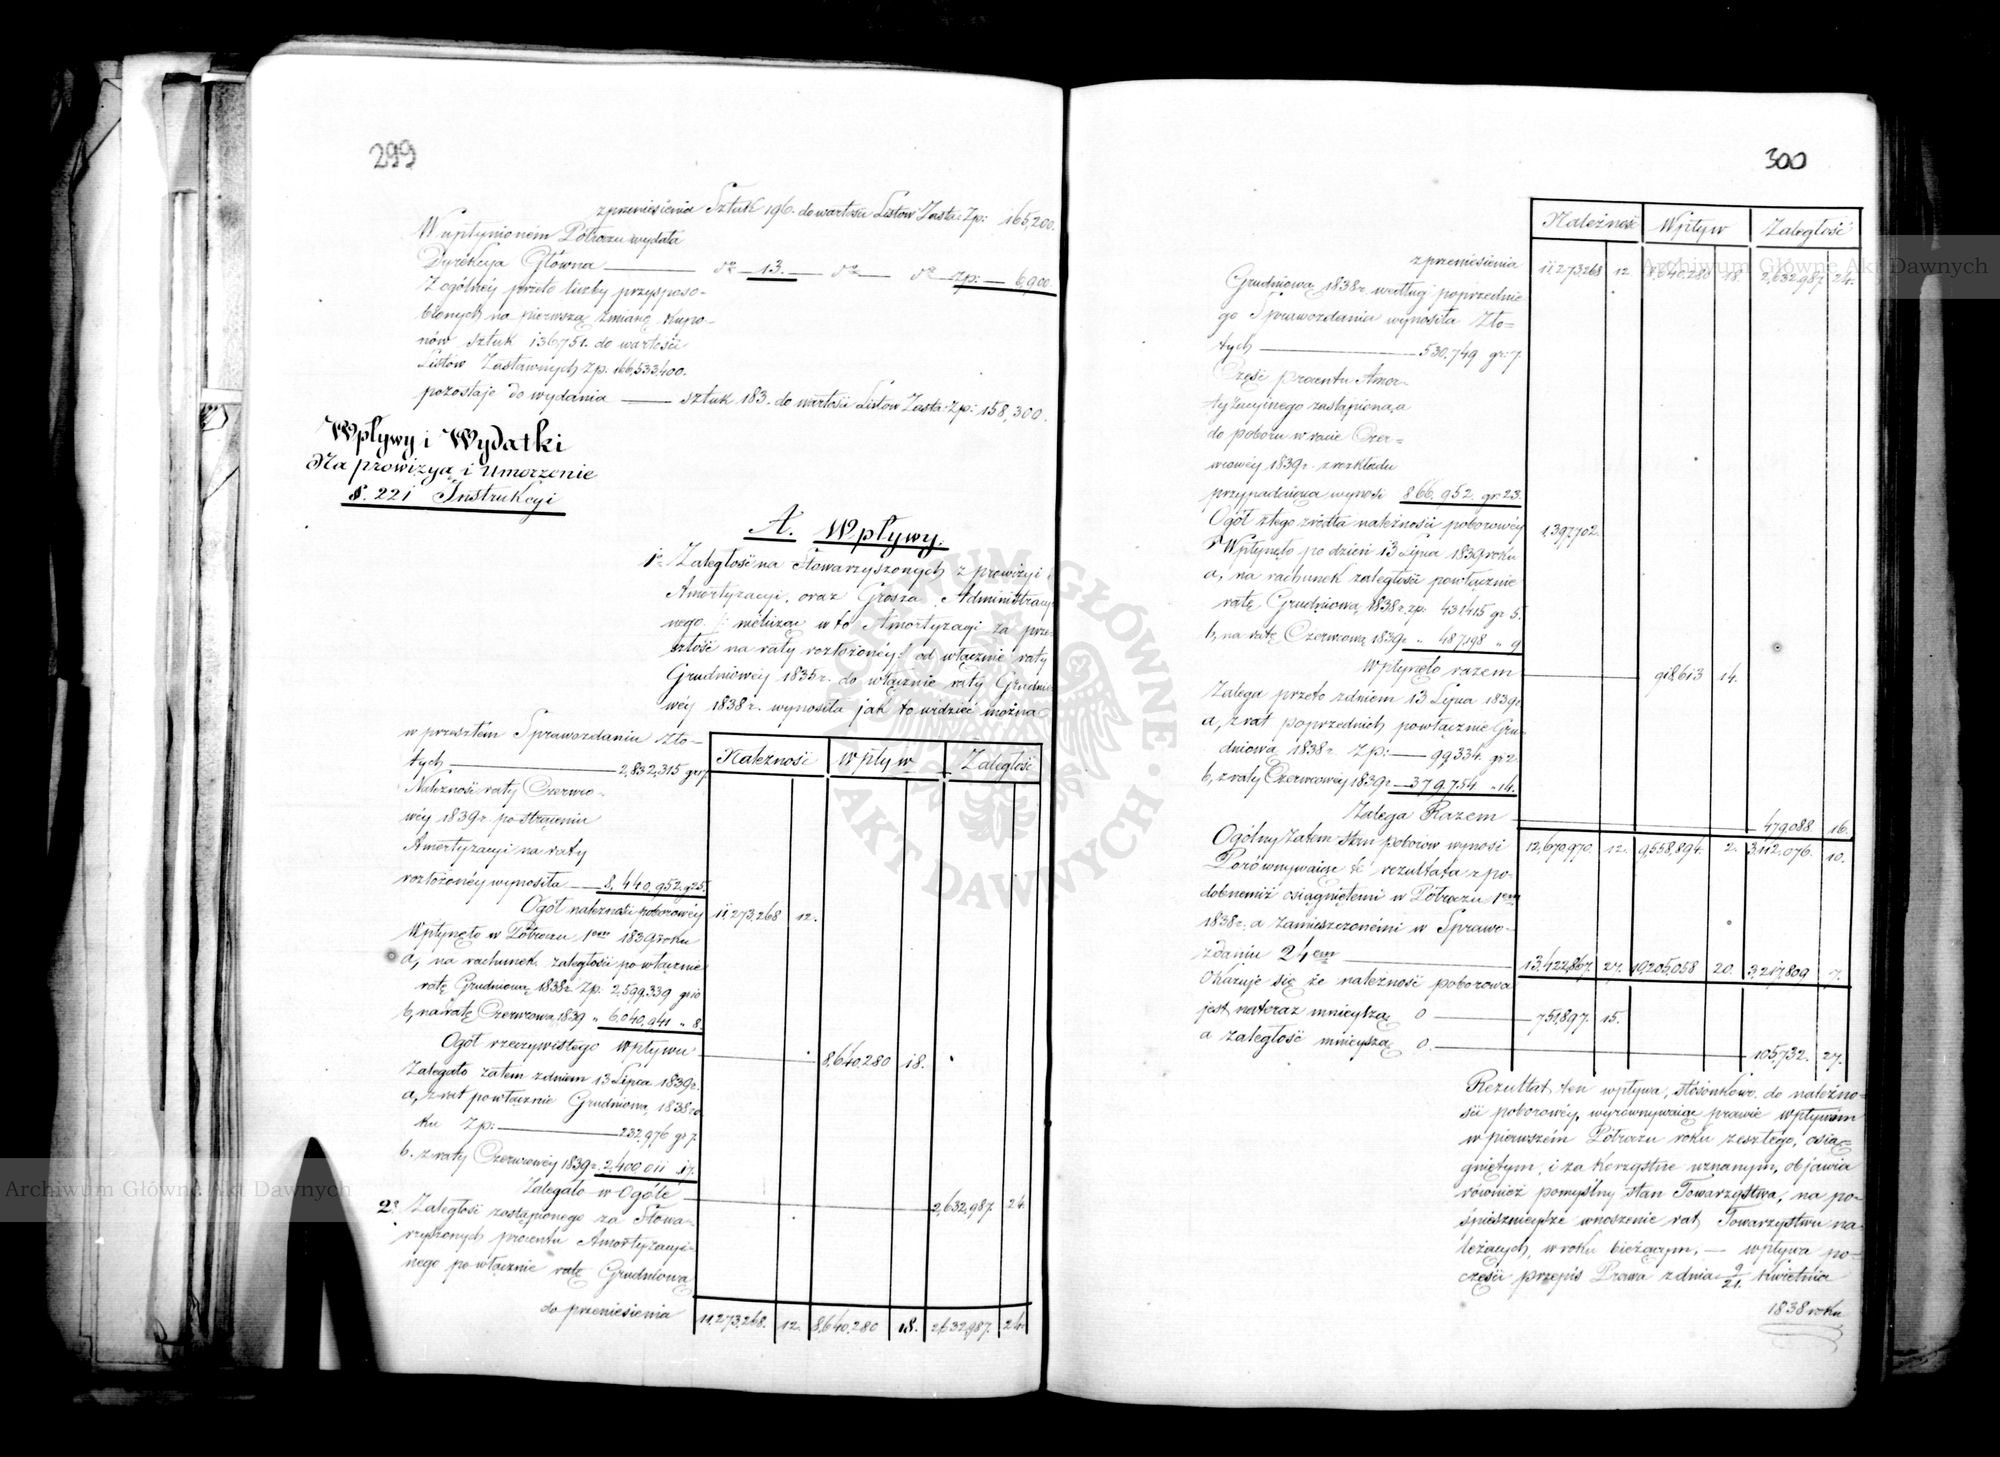 299
z przeniesienia Sztuk 196. do wartości Listów Zasta: Zp: 165,200.
W upłynionem Półroczu wydała
Dyrekcya Główna — do 13. — do — do Zp: — 6,900.
Z ogólnéy przeto liczby przysposo-
bionych na pierwszą zmianę Kupo-
nów sztuk 136751. do wartości
Listów Zastawnych Zp. 166,533,400.
pozostaje do wydania — sztuk 183. do wartości Listów Zasta: Zp: 158,300.
Wpływy i Wydatki
Na prowizyą i Umorzenie
§. 221 Instrukcyi
A. Wpływy.
1o Zaległość na Stowarzyszonych z prowizyi
Amortyzacyi, oraz Grosza Administracy
nego /: nielicząc w to Amortyzacyi za prze
szłość na raty rozłożonéy :/ od włącznie raty
Grudniowéy 1835 r. do włącznie raty Grudnio
wéy 1838 r. wynosiła jak to widzieć można
w przeszłém Sprawozdaniu Zło-
tych — 2,832,315 gr 17
Należność raty Czerwco-
wéy 1839 r. po strąceniu
Amortyzacyi na raty
rozłożonéy wynosiła — 8,440,952. gr 25.
Należność Wpływ Zaległość
Ogół należności poborowéy 11,273,268 12.
Wpłynęło w Półroczu 1em 1839 roku
a, na rachunek zaległości po włącznie
ratę Grudniową 1838 r. Zp. 2,599,339 gr 10
b, na ratę Czerwcową 1839 „ 6,040,941 „ 8.
Ogół rzeczywistego Wpływu — 8,640,280 18.
Zalegało zatem z dniem 13 Lipca 1839 r.
a, z rat po włącznie Grudniową 1838 ro
ku Zp: — 232,976 gr 7.
b. z raty Czerwcowéy 1839 r. 2,400,011 „ 17.
Zalegało w Ogóle — 2,632,987. 24.
2o Zaległość zastąpionego za Stowa-
rzyszonych procentu Amortyzacyi-
nego po włącznie ratę Grudniową
do przeniesienia 11,273,268. 12. 8,640,280 18. 2,632,987. 24.
300
Należność Wpływ Zaległość
z przeniesienia 11,273,268 12 8,640,280 18. 2,632,987. 24.
Grudniową 1838 r. według poprzednie
go Sprawozdania wynosiła Zło-
tych — 530,749 gr: 7.
Część procentu Amor-
tyzacyjnego zastąpiona, a
do poboru w racie Czer-
wcowéy 1839 r. z rozkładu
przypadająca wynosi 866,952. gr 23.
Ogół z tego źródła należności poborowéy 1,397,702.
Wpłynęło po dzień 13 Lipca 1839 roku
a, na rachunek zaległości po włącznie
ratę Grudniową 1838 r. Zp. 431415 gr 5.
b, na ratę Czerwcową 1839 r. „ 487,198 „ 9
Wpłynęło razem — 918,613 14.
Zalega przeto z dniem 13 Lipca 1839 r.
a, z rat poprzednich po włącznie Gru-
dniową 1838 r. Zp: — 99,334. gr 2.
b, z raty Czerwcowéy 1839 r. — 379,754 „ 14.
Zalega Razem — 479,088. 16.
Ogólny zatem stan poborów wynosi 12,670,970. 12. 9,558,894. 2. 3,112,076. 10.
Porównywając te rezultata z po-
dobnemiż osiągniętemi w Półroczu 1em
1838 r. a zamieszczonémi w Sprawo-
zdaniu 24em — 13,422,867. 27. 10,205,058 20. 3,217,809 7.
Okazuje się że należność poborowa
jest na teraz mnieyszą o — 751,897. 15.
a zaległość mnieyszą o. — 105,732. 27.
Rezultat ten wpływa, stósunkowo do należno-
ści poborowéy, wyrównywając prawie wpływom
w pierwszém Półroczu roku zeszłego, osią-
gniętym, i za korzystne uznanym, objawia
również pomyślny stan Towarzystwa, na po-
śpiesznieysze wnoszenie rat Towarzystwu na-
leżących, w roku bieżącym, — wpływa po-
części przepis Prawa z dnia 9/21. Kwietnia
1838 roku
Archiwum Główne Akt Dawnych
Archiwum Główne Akt Dawnych
ARCHIWUM GŁÓWNE AKT DAWNYCH